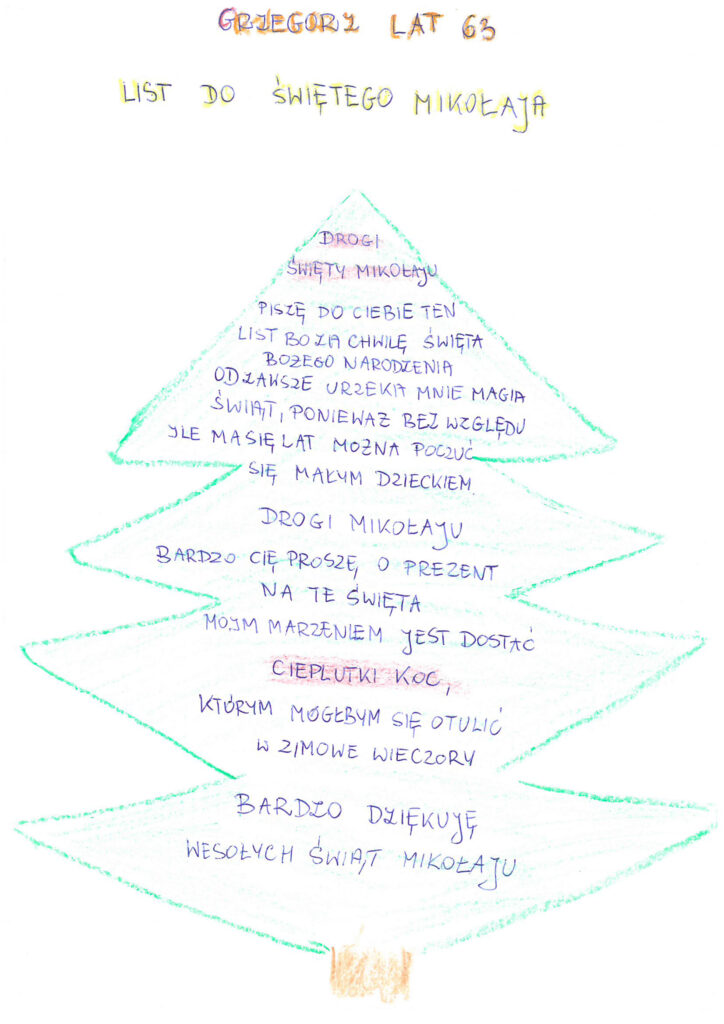 GRZEGORZ LAT 63
LIST DO ŚWIĘTEGO MIKOŁAJA
DROGI
ŚWIĘTY MIKOŁAJU
PISZĘ DO CIEBIE TEN
LIST BO ZA CHWILĘ ŚWIĘTA
BOŻEGO NARODZENIA
OD ZAWSZE URZEKA MNIE MAGIA
ŚWIĄT, PONIEWAŻ BEZ WZGLĘDU
ILE MA SIĘ LAT MOŻNA POCZUĆ
SIĘ MAŁYM DZIECKIEM.
DROGI MIKOŁAJU
BARDZO CIĘ PROSZĘ, O PREZENT
NA TE ŚWIĘTA
MOJM MARZENIEM JEST DOSTAĆ
CIEPLUTKI KOC,
KTÓRYM MÓGŁBYM SIĘ OTULIĆ
W ZIMOWE WIECZORY
BARDZO DZIĘKUJĘ
WESOŁYCH ŚWIĄT MIKOŁAJU